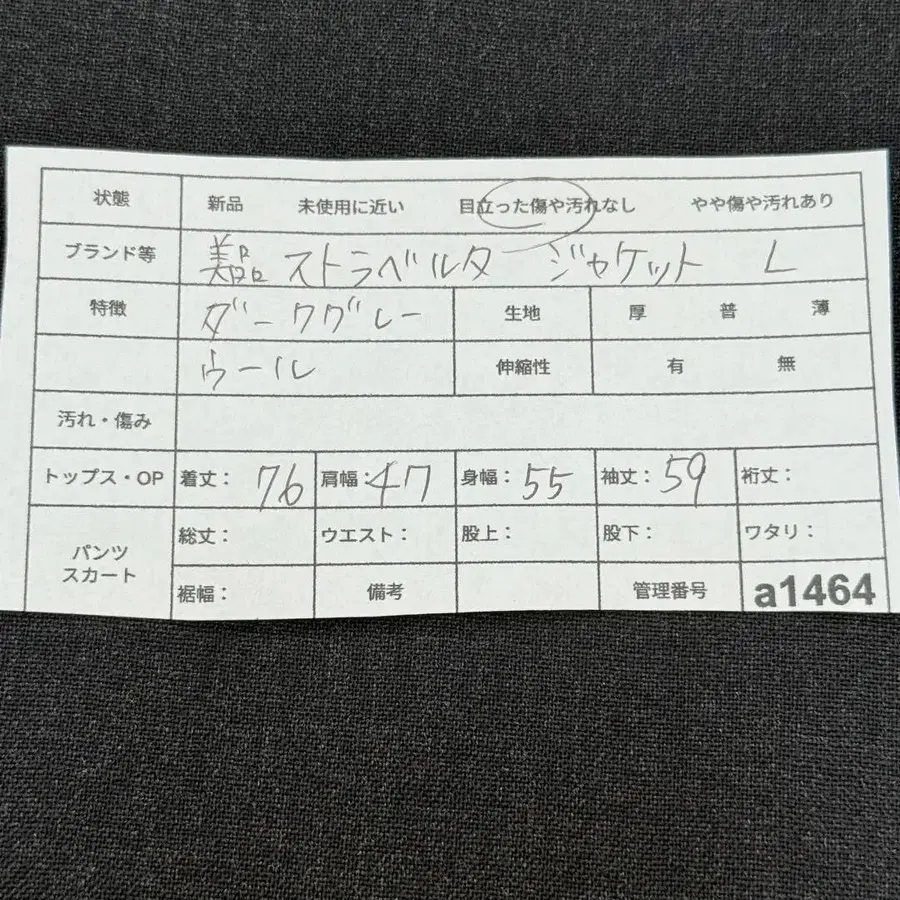 状態 新品 未使用に近い 目立った傷や汚れなし やや傷や汚れあり
ブランド等 美品 ストラベルタ ジャケット L
特徴 ダークグレー 生地 厚 普 薄
ウール 伸縮性 有 無
汚れ・傷み
トップス・OP 着丈: 76 肩幅: 47 身幅: 55 袖丈: 59 裄丈:
パンツ スカート 総丈: ウエスト: 股上: 股下: ワタリ:
裾幅: 備考 管理番号 a1464